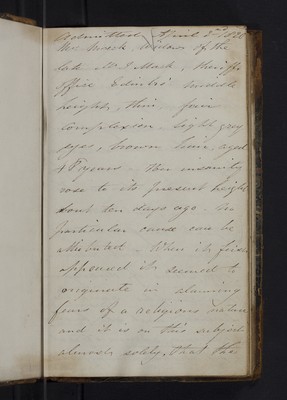 Admitted April 2nd
Mrs Mack, widow of the
late Mr J Mack, Sheriffs
Office Edinbr middle
height, thin, fair
complexion, light grey
eyes, brown hair, aged
48 years. Her insanity
rose to its present height
about ten days ago. No
particular cause can be
attributed. When it first
appeared it seemed to
originate in alarming
fears of a religious nature
and it is on this subject
almost solely, that the